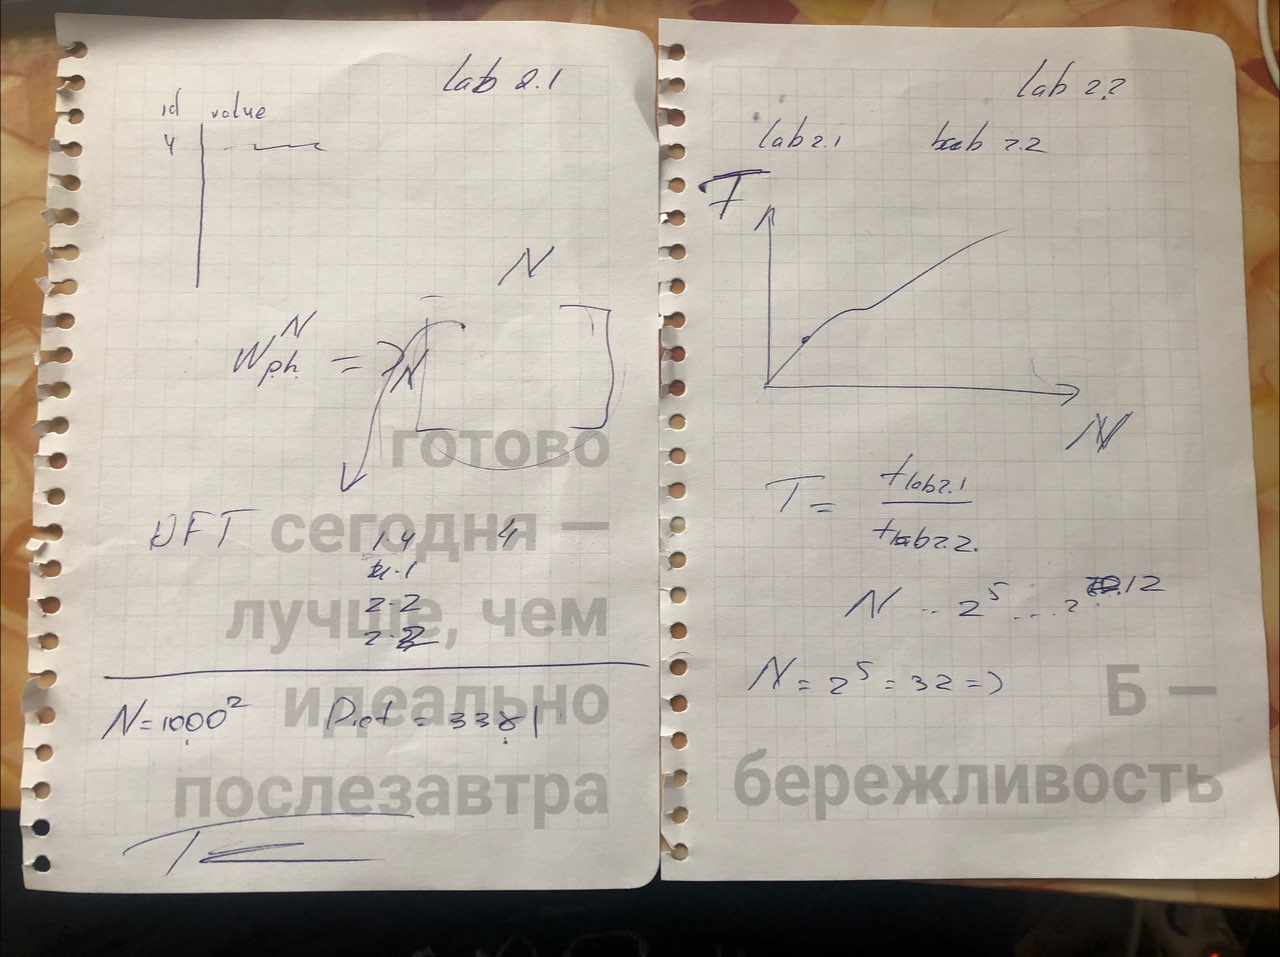 lab 2.1
id value
4
N
W N pk = N
DFT 1·4 4
4·1
2·2
2·2
N=1000²
готово
сегодня —
лучше, чем
идеально
послезавтра
lab 2.2
lab 2.1 lab 2.2
T
N
T = t lab 2.1 / t lab 2.2.
N .. 2⁵ ... 2¹²
N = 2⁵ = 32 =>
Б —
бережливость